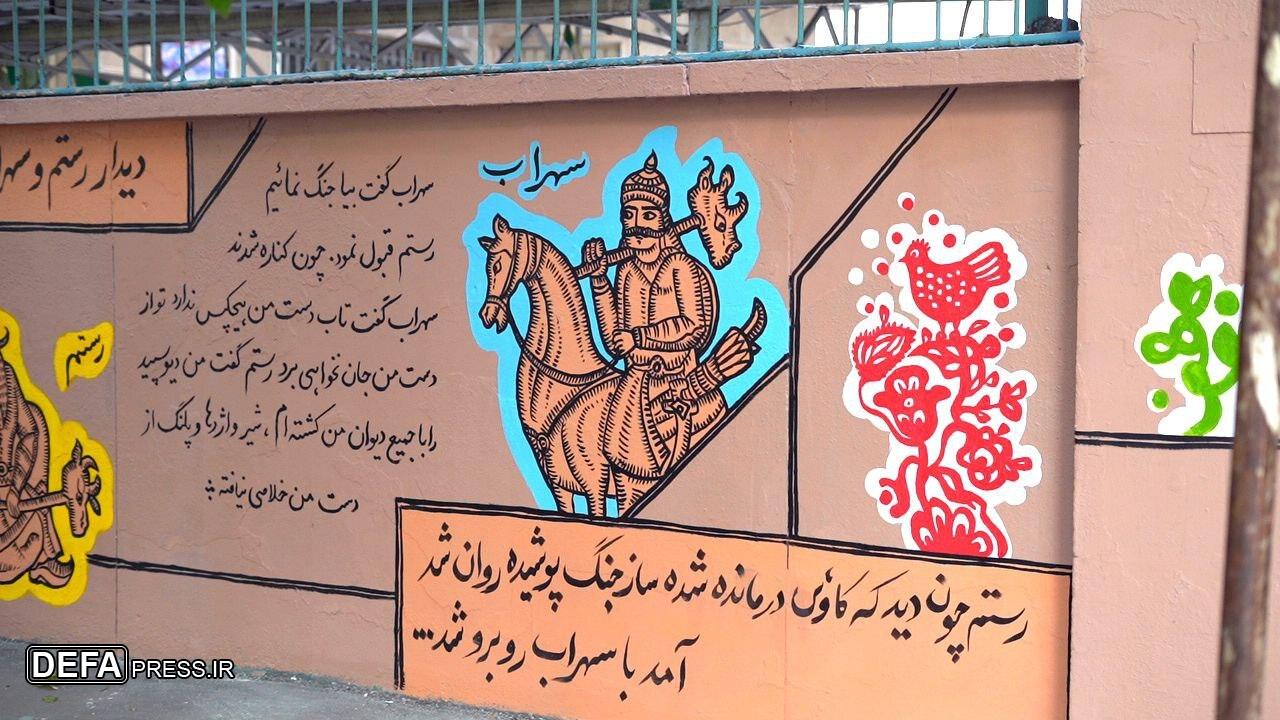 دیدار رستم و سهرا
سهراب گفت بیا جنگ نمائیم
رستم قبول نمود. چون کناره شدند
سهراب گفت تاب دست من هیچکس ندارد تو از
دست من جان نخواهی برد رستم گفت من دیو سپید
را با جمیع دیوان من کشته ام، شیر و اژدها و پلنگ از
دست من خلاصی نیافته
رستم
سهراب
رستم چون دید که کاوس درمانده شده ساز جنگ پوشیده روان شد
آمد با سهراب روبرو شد...
DEFAPRESS.IR